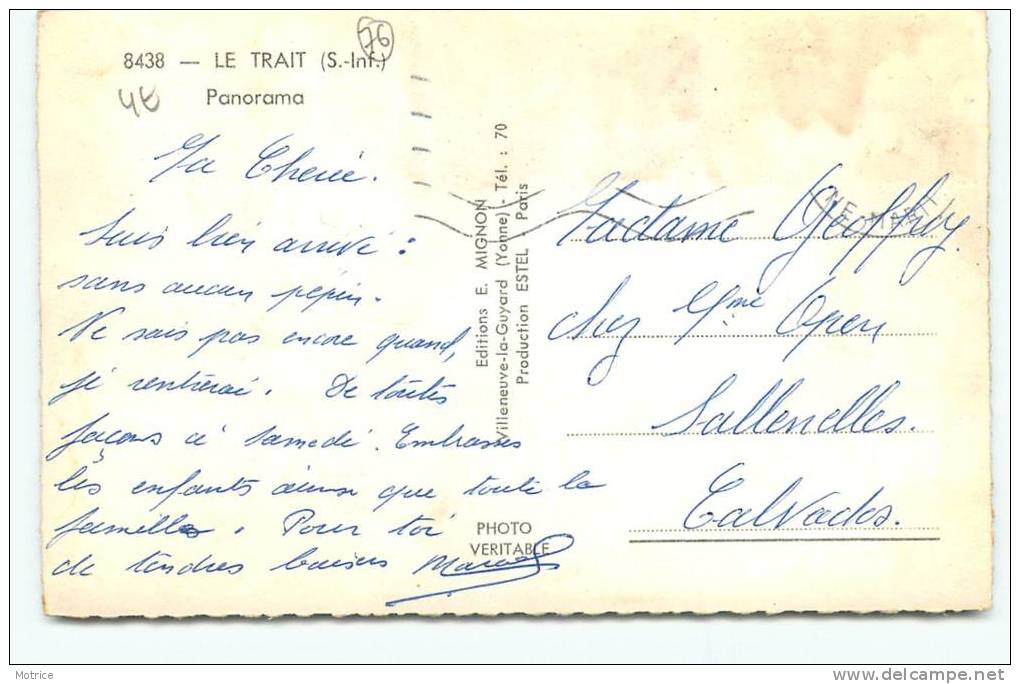 76
8438 — LE TRAIT (S.-Inf.)
Panorama
Ma Cherie.
Suis bien arrivé :
sans aucun pépin.
Ne sais pas encore quand,
je rentrerai. De toutes
façons à Samedi. Embrasses
les enfants ainsi que toute la
famille. Pour toi
de tendres baisers
Editions E. MIGNON
Villeneuve-la-Guyard (Yonne) - Tél. : 70
Production ESTEL Paris
PHOTO
VERITABLE
Madame Geoffroy.
chez Mme
Sallenelles.
Calvados.
Motrice
www.delcampe.net